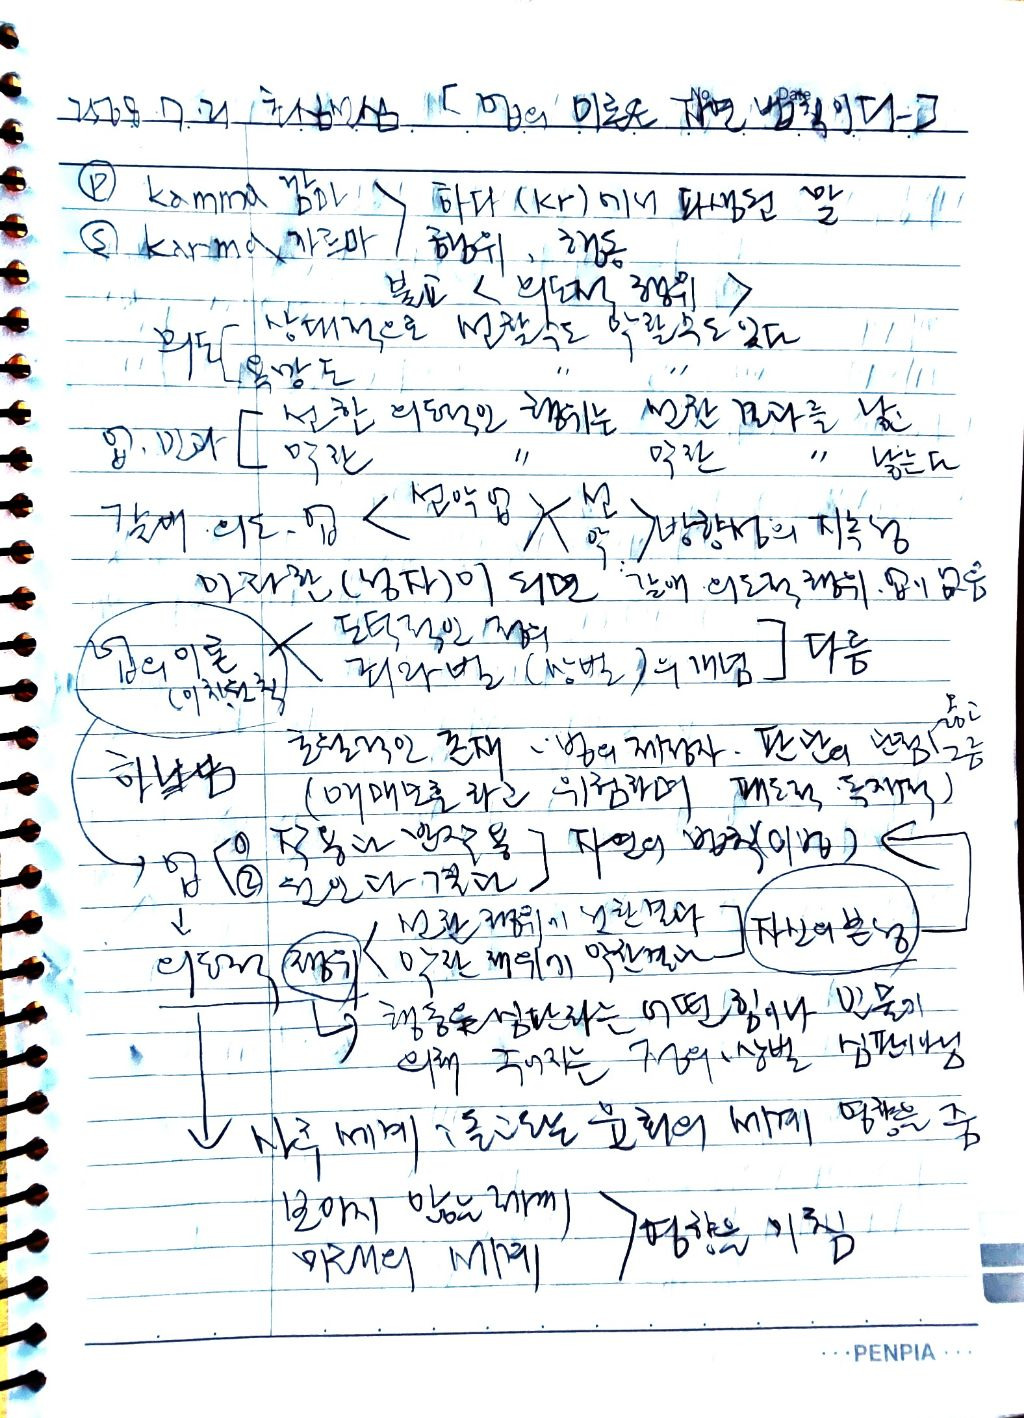 7. 21 [업의 이론은 자연 법칙이다-]
No. Date
Ⓟ kamma 깜마 > 하다 (kr)에서 파생된 말
Ⓢ karma 카르마 행위, 행동
불교 < 의도적 행위 >
의도 상대적으로 선할수도 악할수도 있다
욕망도 〃 〃 〃
업.과 [ 선한 의도적인 행위는 선한 결과를 낳는
악한 〃 악한 〃 낳는다
갈애.의도.업 < 선악업 > < 선 악 > 방향성의 지속성
아라한(성자)이 되면 갈애.의도적 행위.업이 없음
업의 이론 < 도덕적인 정의
(인과법칙) 죄와 벌 (상벌)의 개념 ] 다름
하나님 초월적인 존재 법의 제정자. 판단의 옳고 그름
( 애매모호하고 위험하며 독재적)
업 ① 작용과 반작용 ] 자연의 법칙(이법)
② 원인과 결과
↓
선한 행위가 선한결과 ] 자신의 본성
의도적 행위 < 악한 행위가 악한결과
행동을 심판하는 어떤 힘이나 인물에
의해 주어지는 상벌 심판이 아님
사후 세계: 돌고도는 윤회의 세계 영향을 줌
보이지 않는
미래의 세계 > 영향을 미침
···PENPIA···